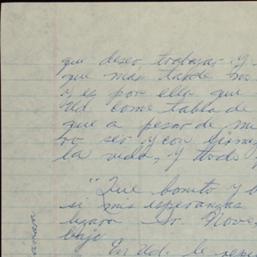 que deseo trabajar y
que mas tarde me
y es por ello que
Ud como tabla de
que a pesar de mi
la vida, y todo
"Que bonito y b
si mis esperanzas
Sr Nove
bajo
En Ud. le